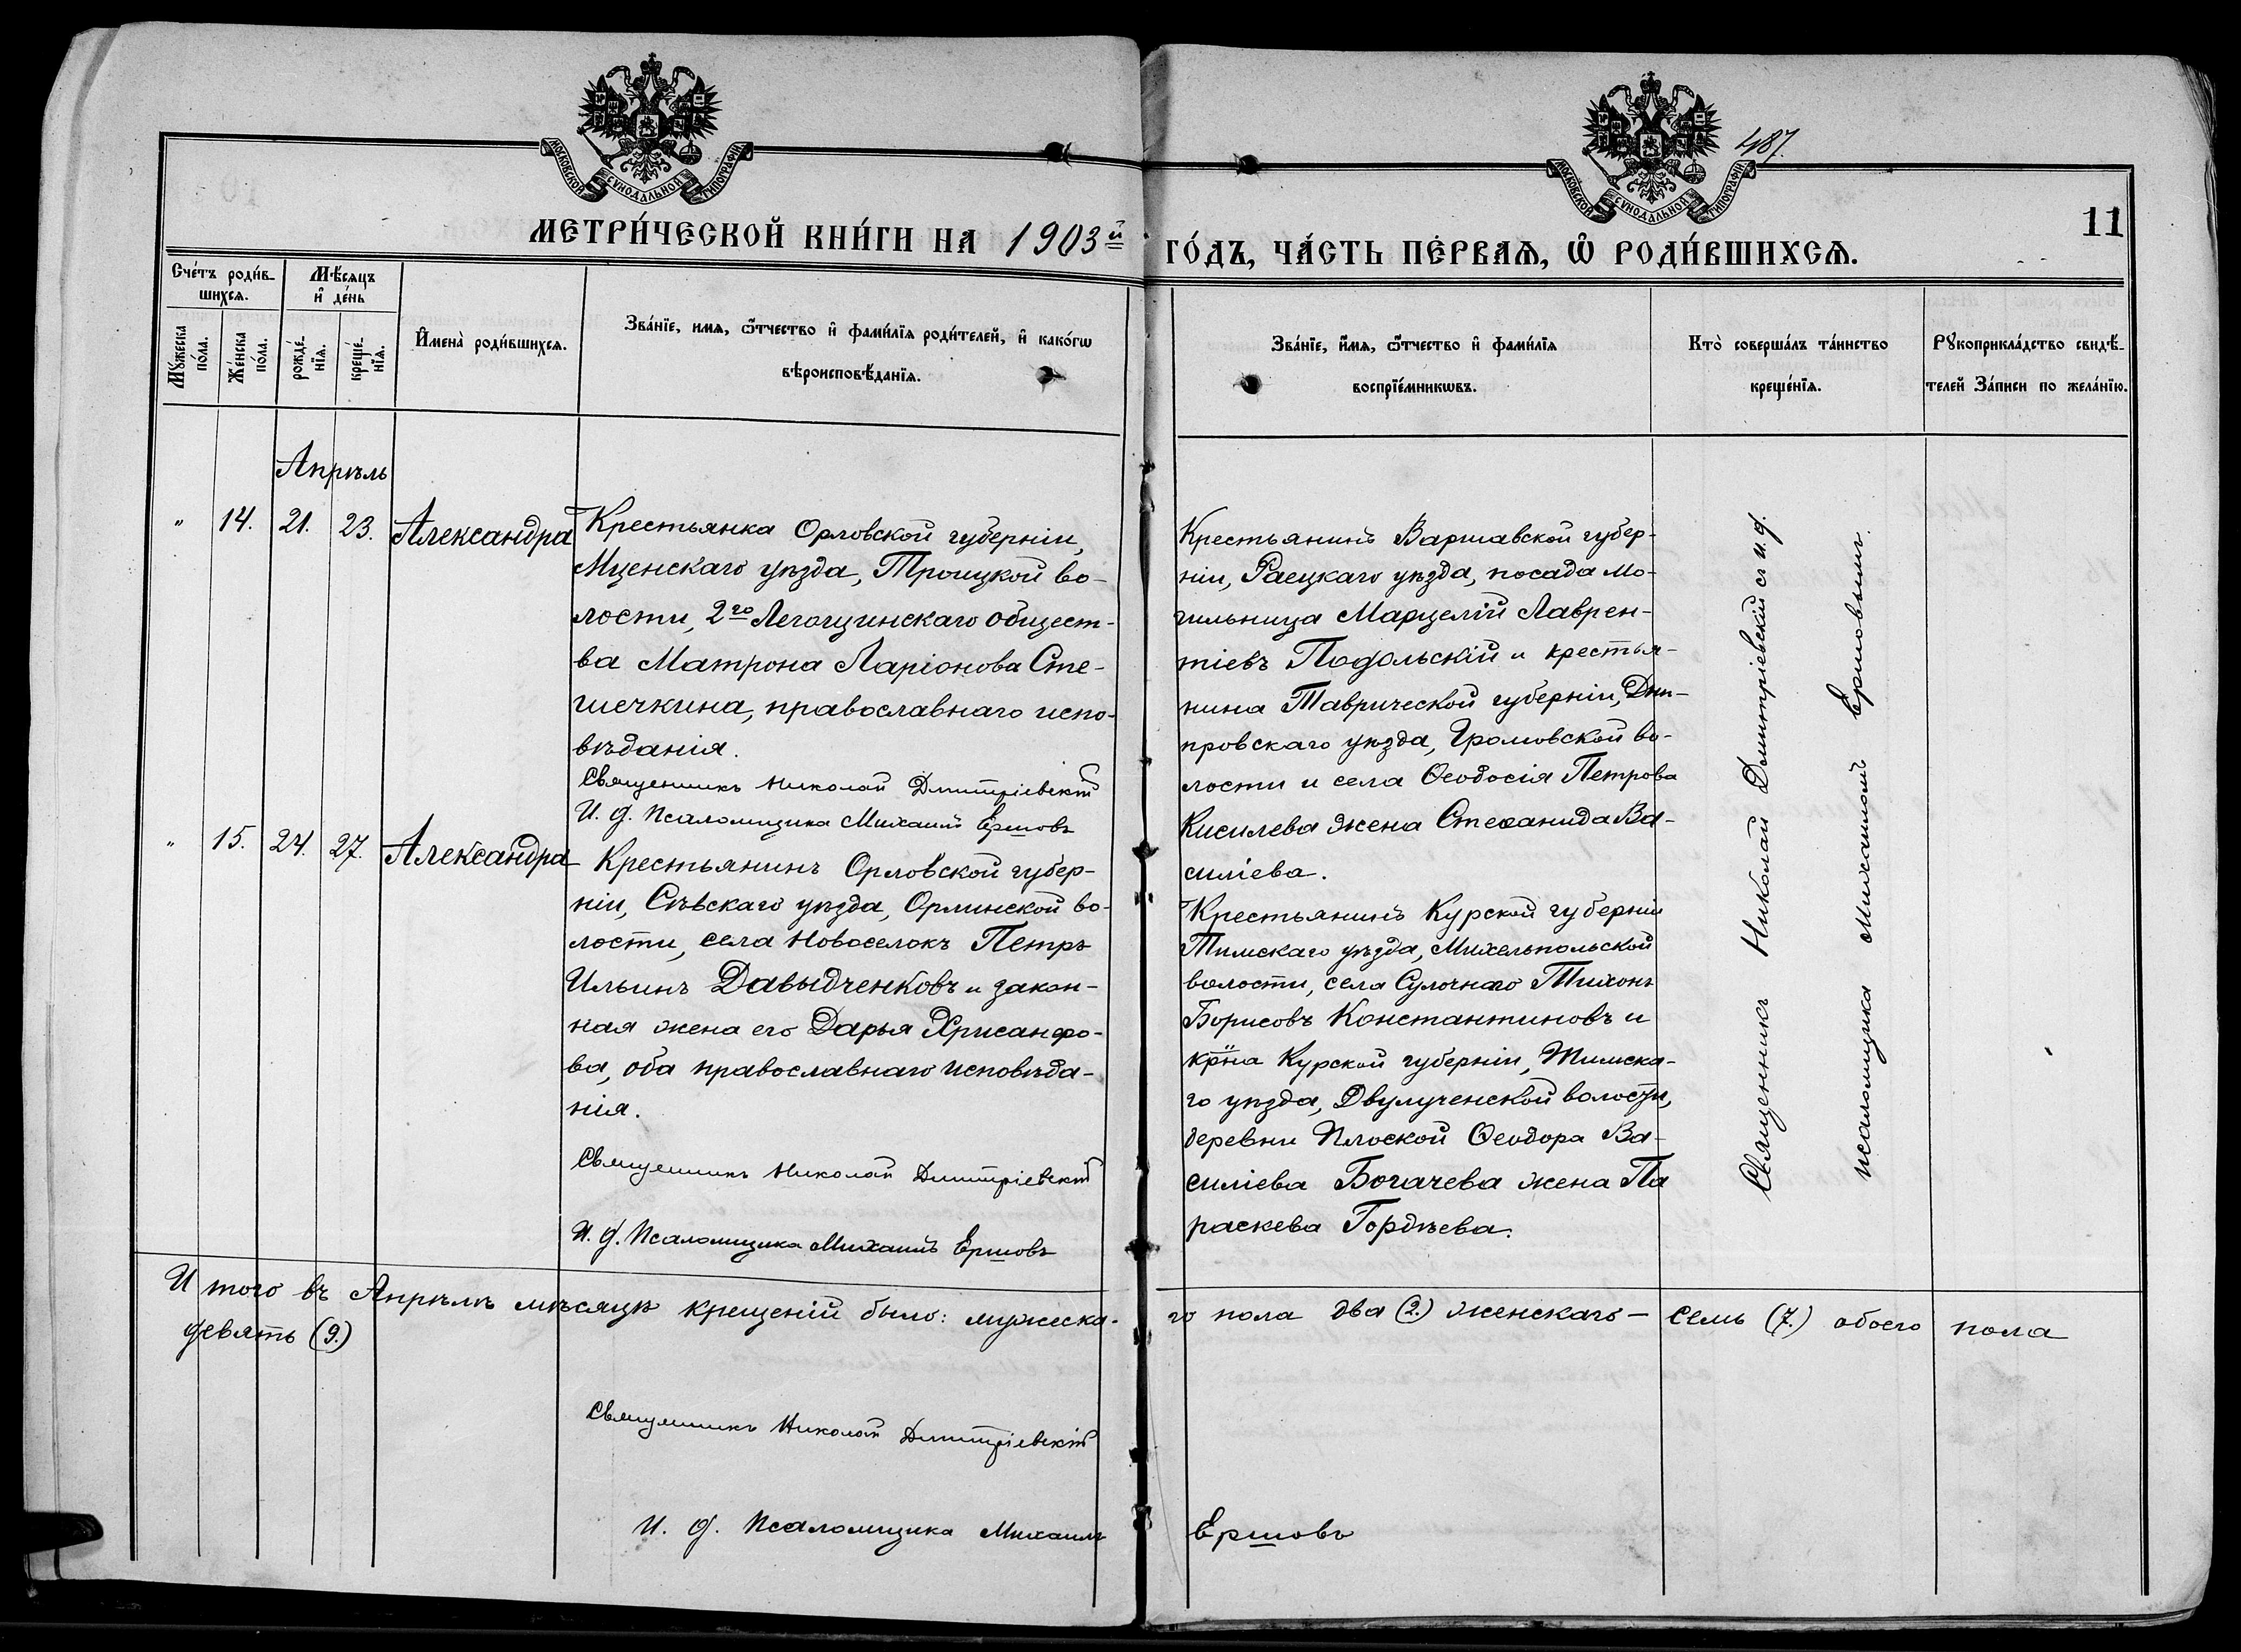 МОСКОВСКОЙ СѴНОДАЛЬНОЙ ТИПОГРАФІИ.
МОСКОВСКОЙ СѴНОДАЛЬНОЙ ТИПОГРАФІИ.
487.
11
МЕТРИ́ЧЕСКОЙ КНИ́ГИ НА 1903й
ГО́ДЪ, ЧА́СТЬ ПЕ́РВАѦ, Ѡ҆ РОДИ́ВШИХСѦ.
Сче́тъ роди́в-
шихсѧ.
Мꙋ́жеска
по́ла.
Же́нска
по́ла.
Мѣ́сѧцъ
и҆ де́нь
рожде́-
нїѧ.
креще́-
нїѧ.
И҆мена̀ роди́вшихсѧ.
Зва́нїе, имѧ, ѻ҆́тчество и҆ фами́лїѧ роди́телей, и҆ како́гѡ
вѣроисповѣ́данїѧ.
Зва́нїе, и҆́мѧ, ѻ҆́тчество и҆ фами́лїѧ
воспрїе́мникѡвъ.
Кто̀ соверша́лъ та́инство
креще́нїѧ.
Рꙋкоприкла́дство свидѣ́-
телей За́писи по жела́нїю.
Апрѣль
" 14. 21. 23. Александра
Крестьянка Орловской губерніи,
Мценскаго уѣзда, Троицкой во-
лости, 2го Легощинскаго общест-
ва Матрона Ларіонова Сте-
шечкина, православнаго испо-
вѣданія.
Священникъ Николай Дмитріевскій
И. д. Псаломщика Михаилъ Ершовъ
Крестьянинъ Варшавской губер-
ніи, Раецкаго уѣзда, посада Мо-
гильница Марцелій Лаврен-
тіевъ Подольскій и крестья-
нина Таврической губерніи, Дни-
провскаго уѣзда, Громовской во-
лости и села Ѳеодосія Петрова
Кисилева жена Стефанида Ва-
силіева.
" 15. 24. 27. Александра
Крестьянинъ Орловской губер-
ніи, Сѣвскаго уѣзда, Орлинской во-
лости, села Новоселокъ Петръ
Ильинъ Давыдченковъ и закон-
ная жена его Дарья Хрисанфо-
ва, оба православнаго исповѣда-
нія.
Священникъ Николай Дмитріевскій
И. д. Псаломщика Михаилъ Ершовъ
Крестьянинъ Курской губерніи
Тимскаго уѣзда, Михельпольской
волости, села Сулочнаго Тихонъ
Борисовъ Константиновъ и
кр̃на Курской губерніи, Тимска-
го уѣзда, Двулученской волости,
деревни Плоской Ѳеодора Ва-
силіева Богачева жена Па
раскева Гордѣева.
Священникъ Николай Дмитріевскій съ и. д.
псаломщика Михаиломъ Ершовымъ.
Итого въ Апрѣлѣ мѣсяцѣ крещеній было: мужеска-
го пола два (2.) женскаго — семь (7.) обоего пола
девять (9.)
Священникъ Николай Дмитріевскій
И. д. Псаломщика Михаилъ Ершовъ